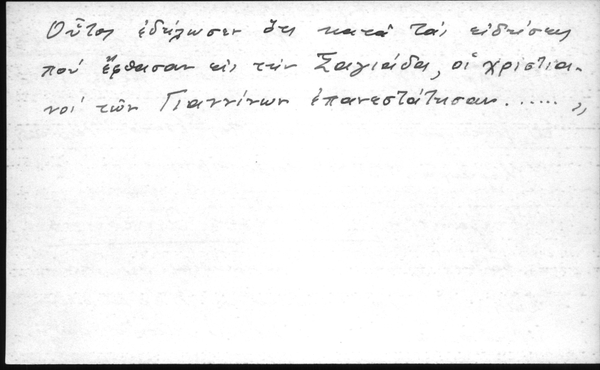 Οὗτος ἐδήλωσεν ὅτι κατά τάς εἰδήσεις
πού ἔφθασαν εἰς τήν Σαγιάδα, οἱ χριστια-
νοί τῶν Γιαννίνων ἐπανεστάτησαν......,,